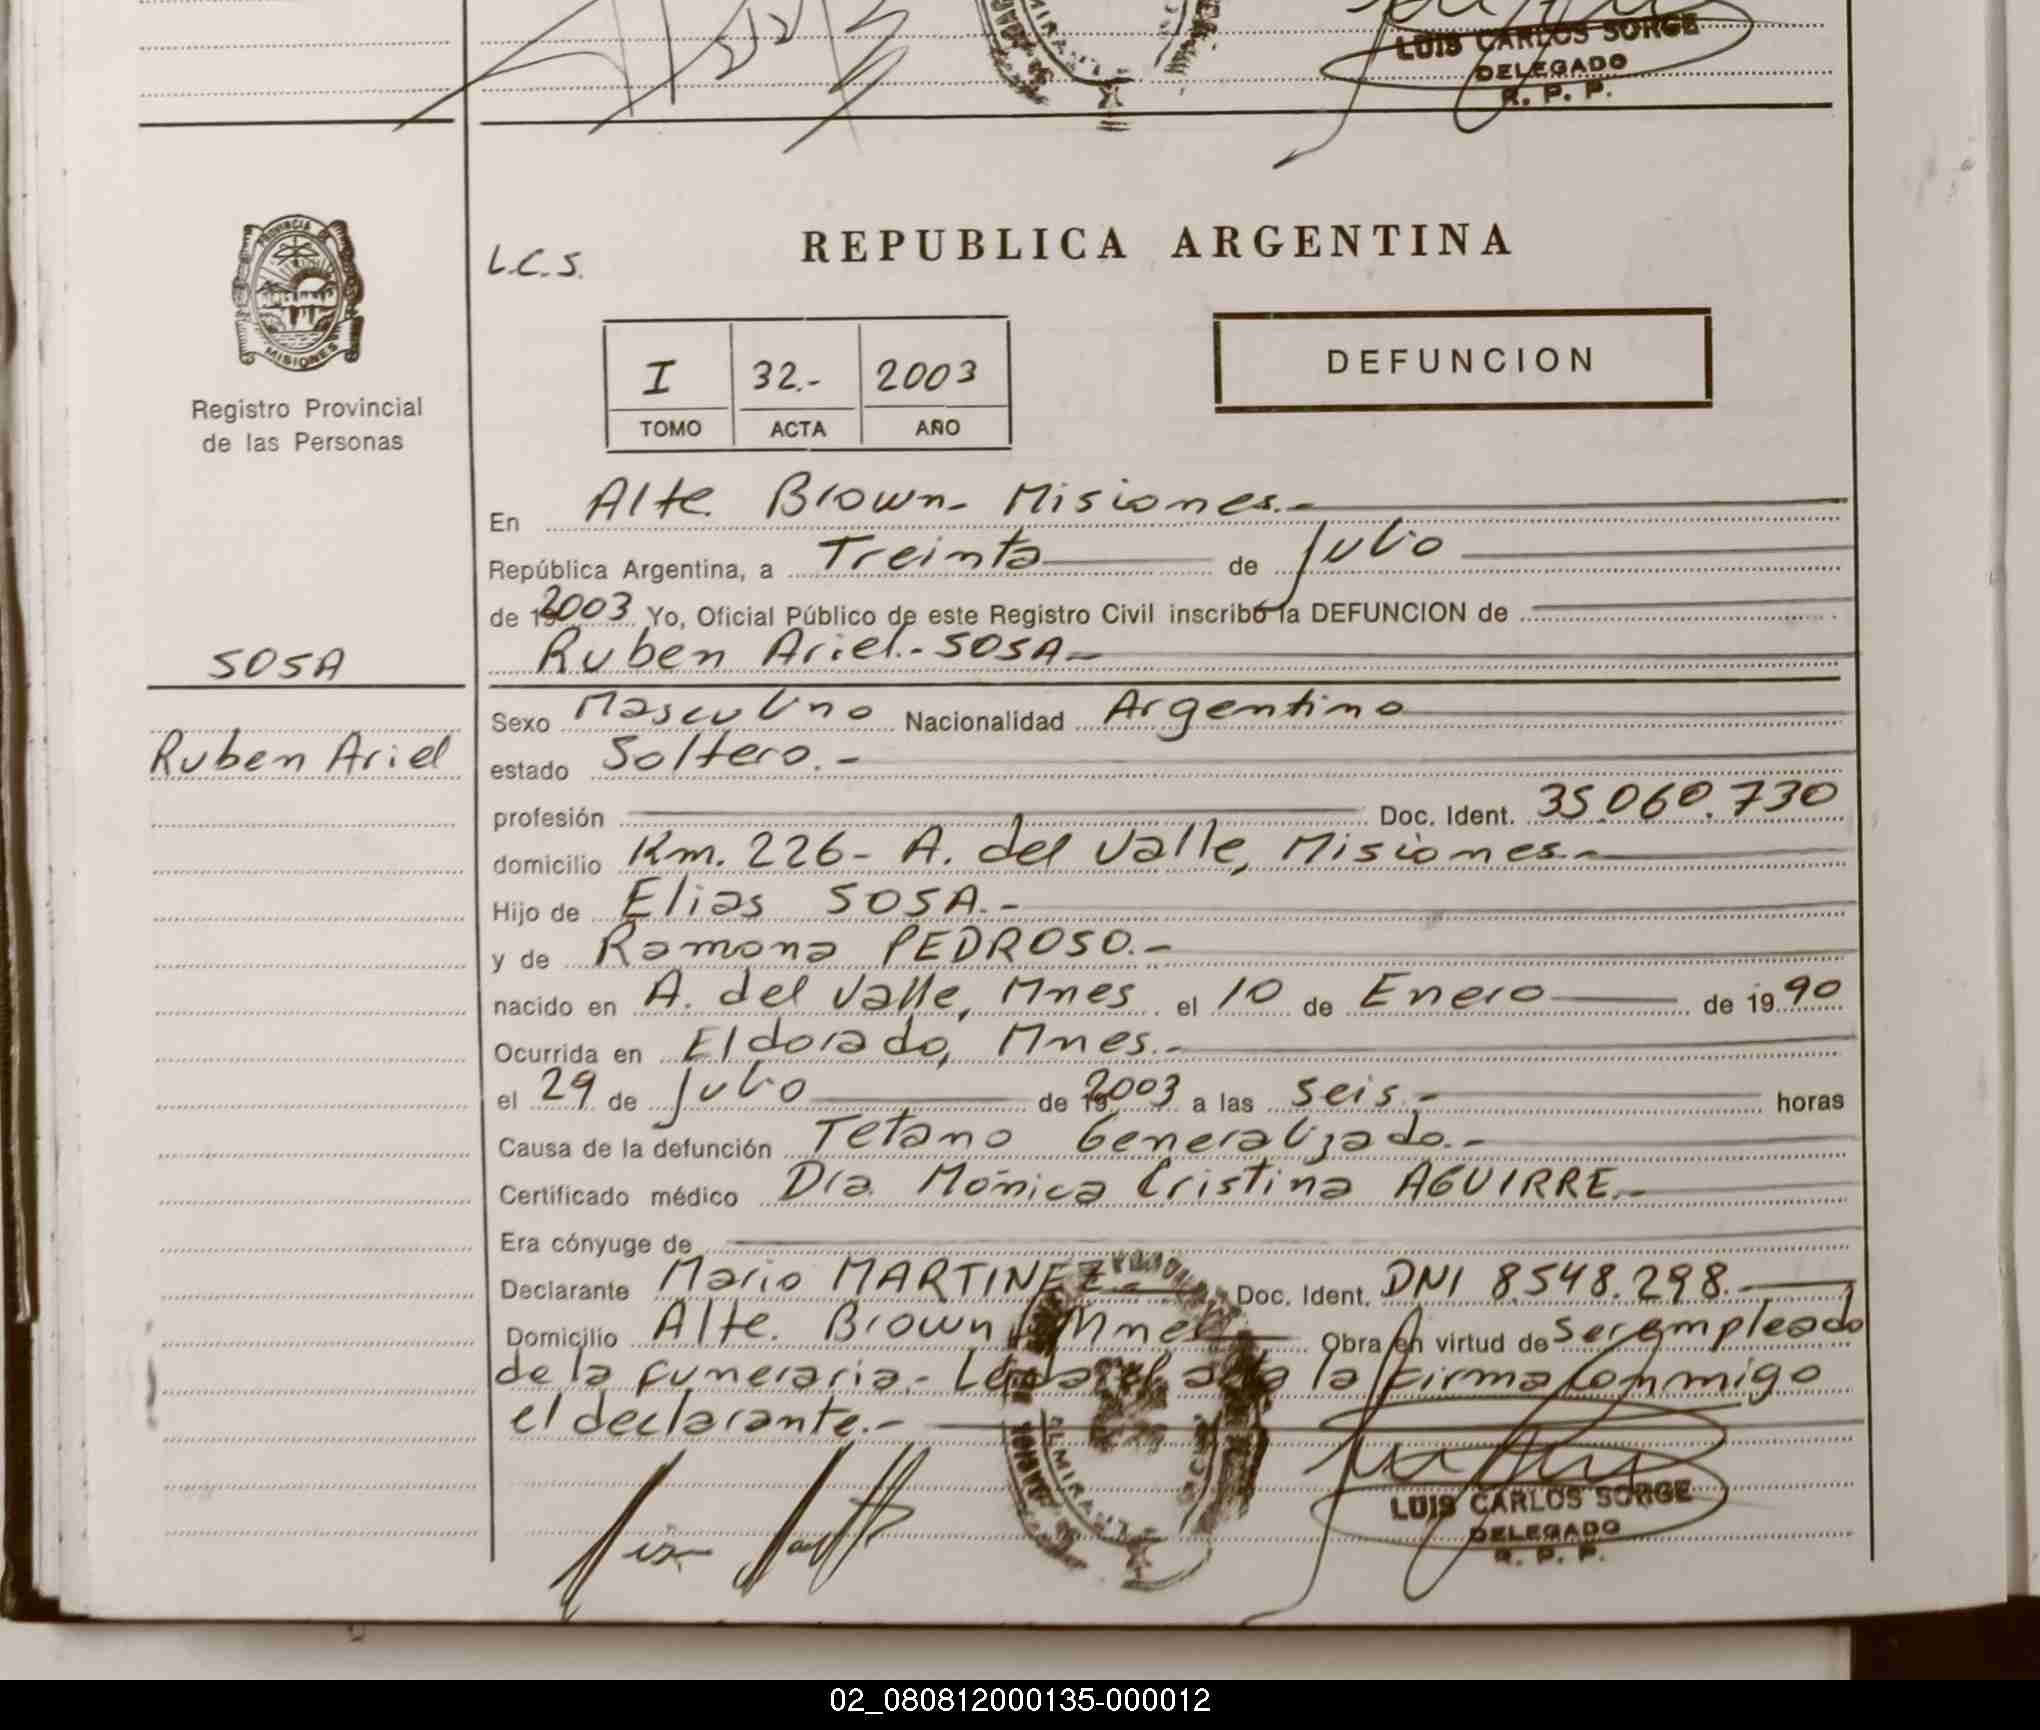 LUIS CARLOS SORGE
DELEGADO
R. P. P.
PROVINCIA DE
MISIONES
Registro Provincial
de las Personas
L.C.S.
REPUBLICA ARGENTINA
I 32.- 2003
TOMO ACTA AÑO
DEFUNCION
En Alte. Brown- Misiones.-
República Argentina, a Treinta de Julio
de 192003 Yo, Oficial Público de este Registro Civil inscribo la DEFUNCION de
Ruben Ariel.- SOSA-
SOSA
Ruben Ariel
Sexo Masculino Nacionalidad Argentino
estado Soltero.-
profesión Doc. Ident. 35.060.730
domicilio Km. 226- A. del Valle, Misiones.-
Hijo de Elias SOSA.-
y de Ramona PEDROSO.-
nacido en A. del Valle, Mnes el 10 de Enero de 1990
Ocurrida en Eldorado, Mnes.-
el 29 de Julio de 192003 a las seis.- horas
Causa de la defunción Tetano Generalizado.-
Certificado médico Dra. Mónica Cristina AGUIRRE.-
Era cónyuge de
Declarante Mario MARTINEZ.- Doc. Ident. DNI 8.548.298.-
Domicilio Alte. Brown, Mnes Obra en virtud de ser empleado
de la funeraria.- Leida el acta la firma conmigo
el declarante.-
LUIS CARLOS SORGE
DELEGADO
R. P. P.
02_080812000135-000012